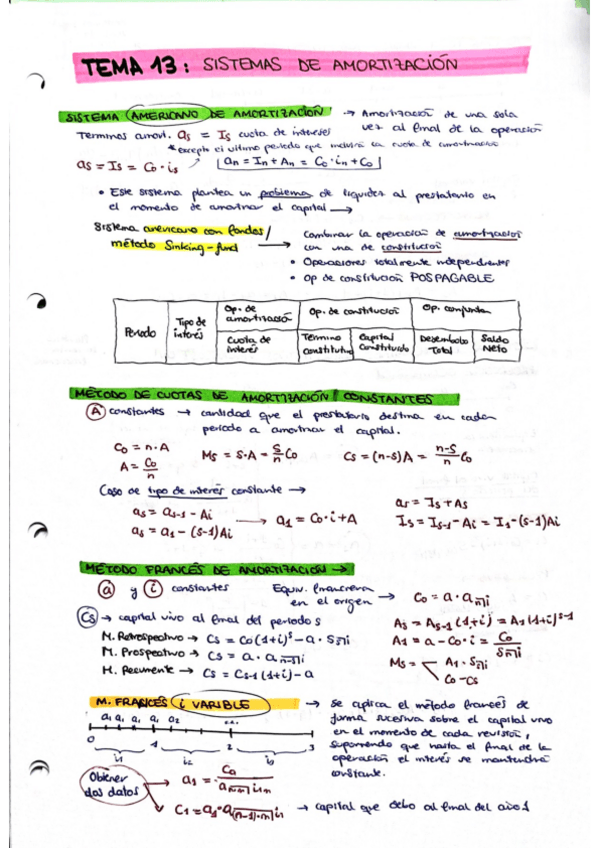 TEMA 13: SISTEMAS DE AMORTIZACIÓN
SISTEMA AMERICANO DE AMORTIZACIÓN → Amortización de una sola
Terminos amort. as = Is cuota de intereses vez al final de la operación
*excepto el ultimo periodo que incluirá la cuota de amortización
as = Is = Co · is an = In + An = Co · in + Co
• Este sistema plantea un problema de liquidez al prestatario en
el momento de amortizar el capital →
Sistema americano con fondos/ → Combinar la operación de amortización
método Sinking-fund con una de constitución
• Operaciones totalmente independientes
• Op de constitución POSPAGABLE
Periodo | Tipo de interés | Op. de amortización | Op. de constitución | Op. conjunta
Cuota de interés | Termino constitutivo | Capital Constituido | Desembolso Total | Saldo Neto
MÉTODO DE CUOTAS DE AMORTIZACIÓN CONSTANTES
A constantes → cantidad que el prestatario destina en cada
periodo a amortizar el capital.
Co = n · A Ms = S · A = S/n Co Cs = (n-s)A = n-s/n Co
A = Co/n
Caso de tipo de interés constante →
as = as-1 - Ai → a1 = Co · i + A as = Is + As
as = a1 - (s-1)Ai Is = Is-1 - Ai = I1 - (s-1)Ai
MÉTODO FRANCÉS DE AMORTIZACIÓN →
a y i constantes Equiv. financiera en el origen → Co = a · an┐i
Cs → capital vivo al final del periodo s As = As-1 (1+i) = A1 (1+i)^s-1
M. Retrospectivo → Cs = Co(1+i)^s - a · Ss┐i A1 = a - Co · i = Co/Sn┐i
M. Prospectivo → Cs = a · an-s┐i Ms = A1 · Ss┐i
M. Recurrente → Cs = Cs-1 (1+i) - a Co - Cs
M. FRANCÉS i VARIABLE → se aplica el método francés de
a1 a1 a1 a1 a2 forma sucesiva sobre el capital vivo
en el momento de cada revisión,
0 1 2 3 suponiendo que hasta el final de la
i1 i2 i3 operación el interés se mantendrá
constante.
Obtener dos datos → a1 = Co/an·m┐i1m
C1 = a1 · a(n-1)·m┐i1 → capital que debo al final del año 1